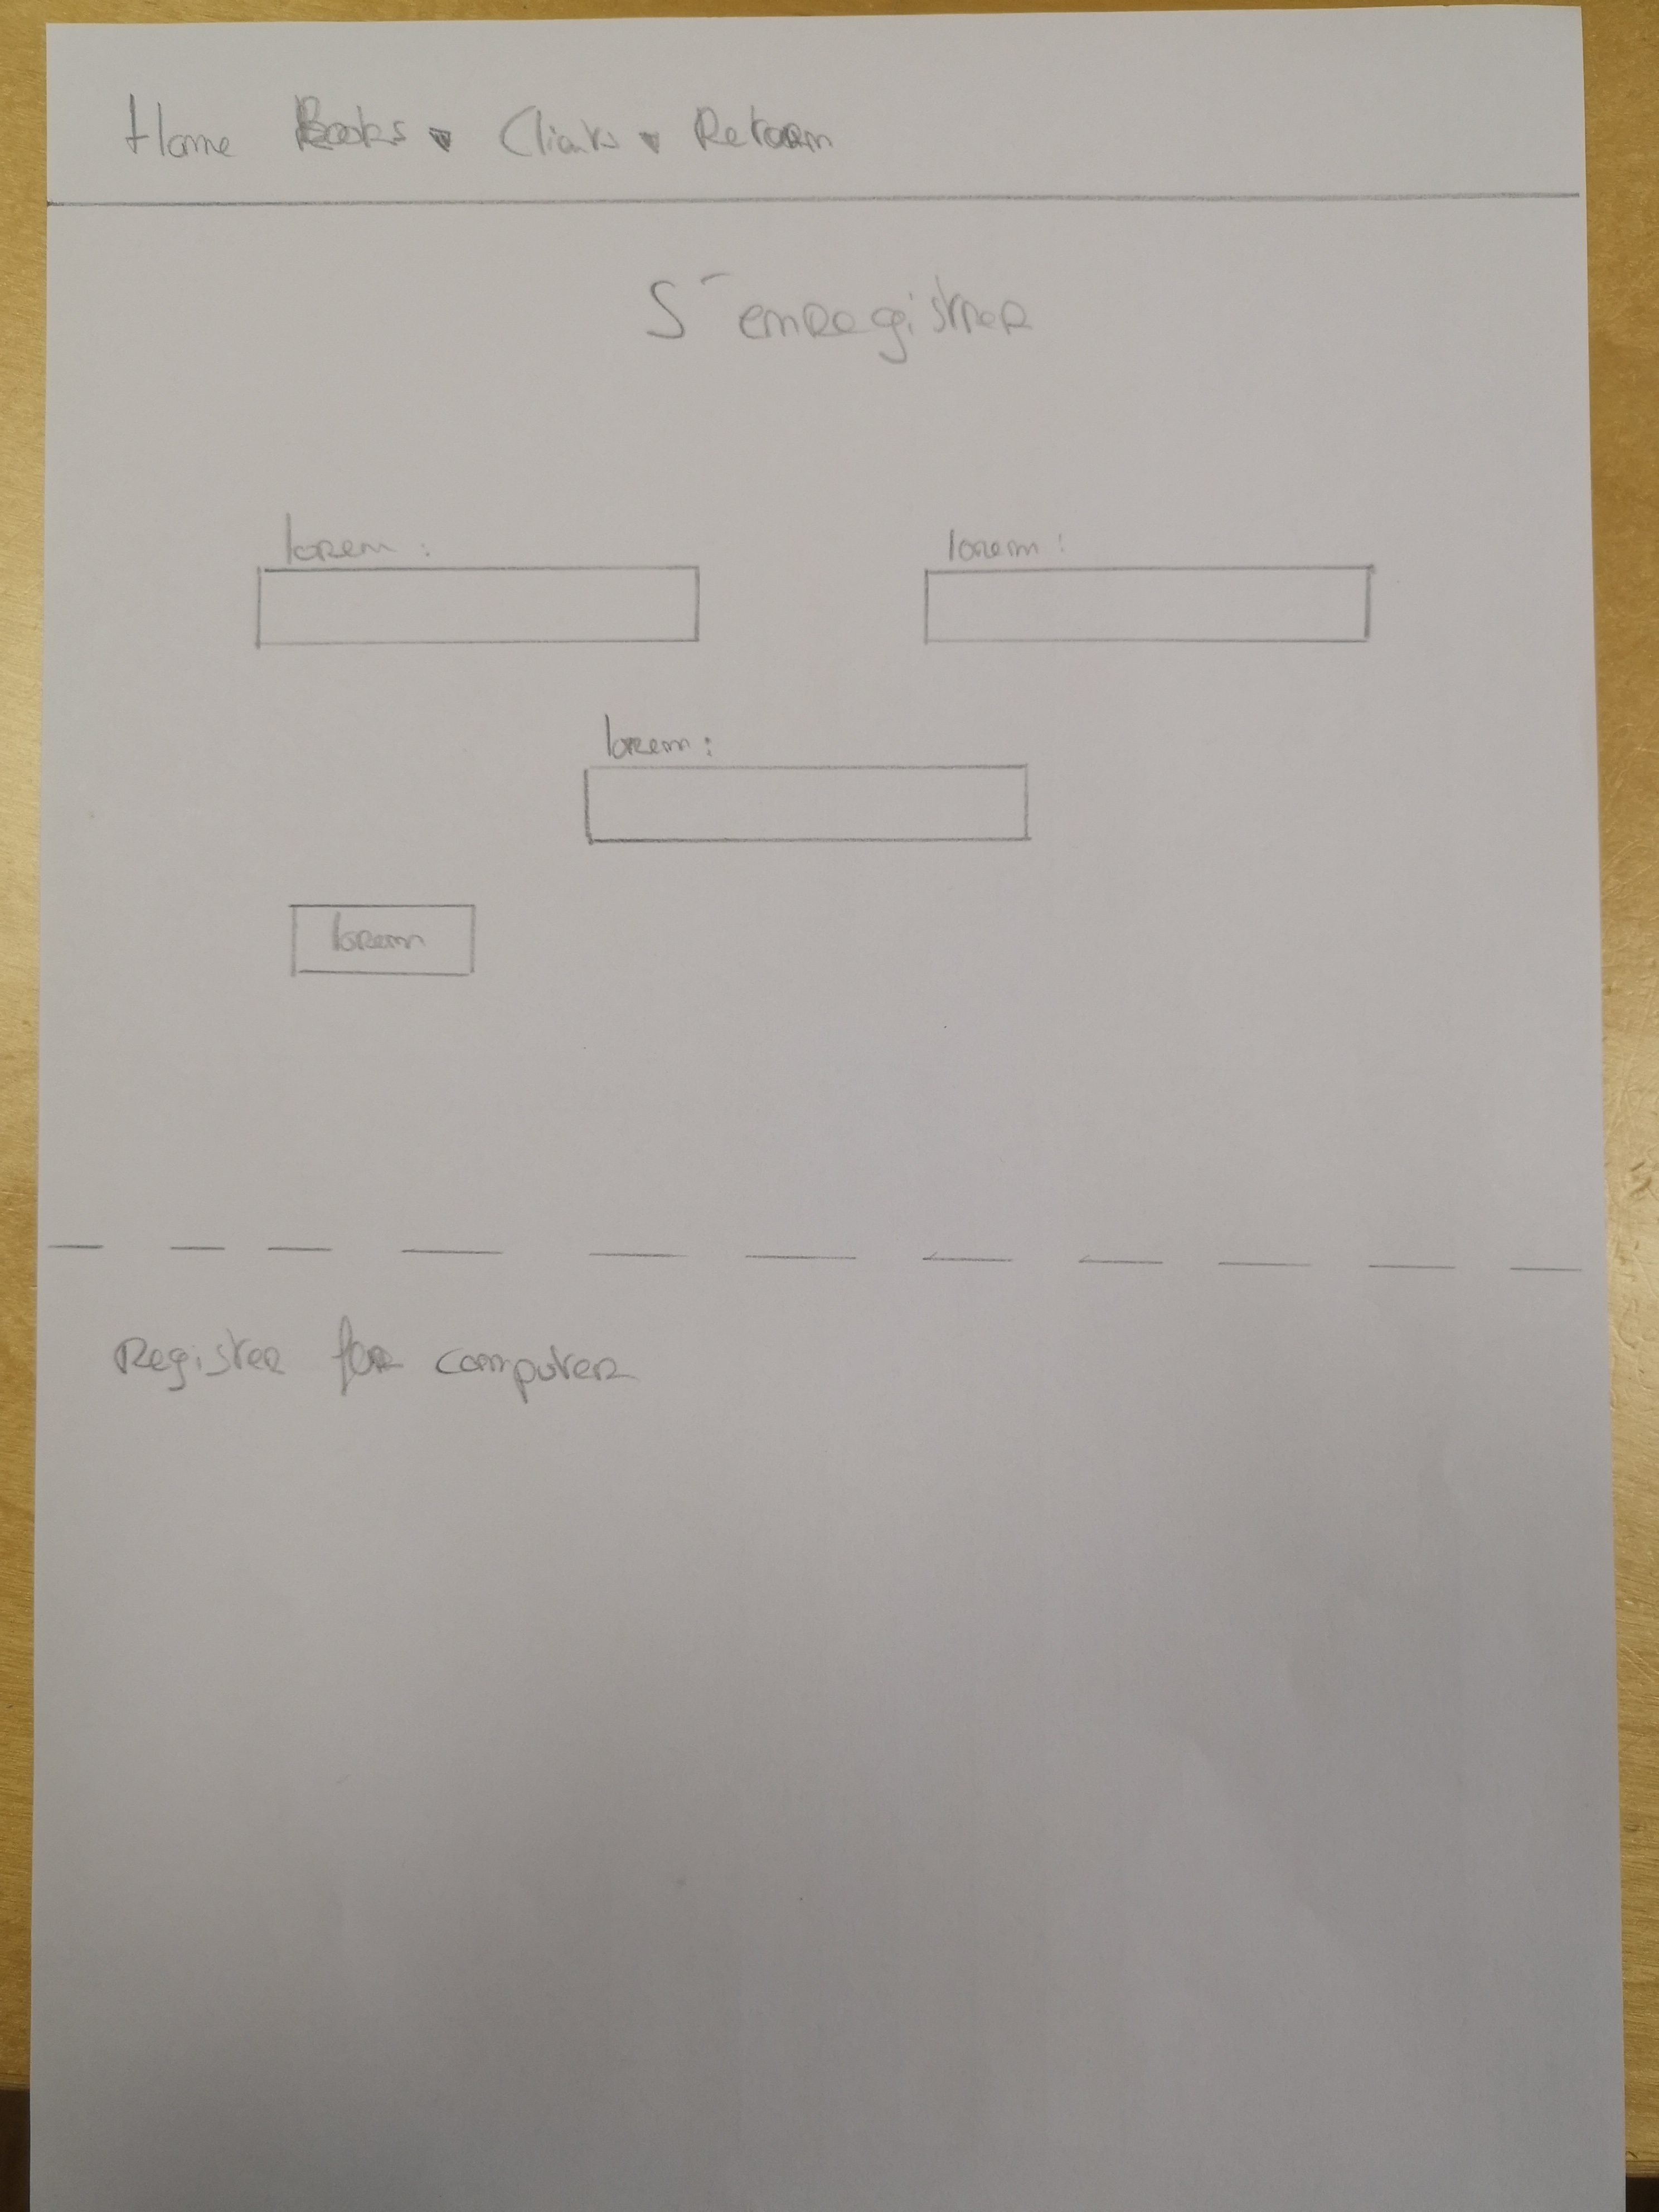 Home Books ▾ Clients ▾ Return
S'enregistrer
lorem :
lorem :
lorem :
lorem
Register for computer